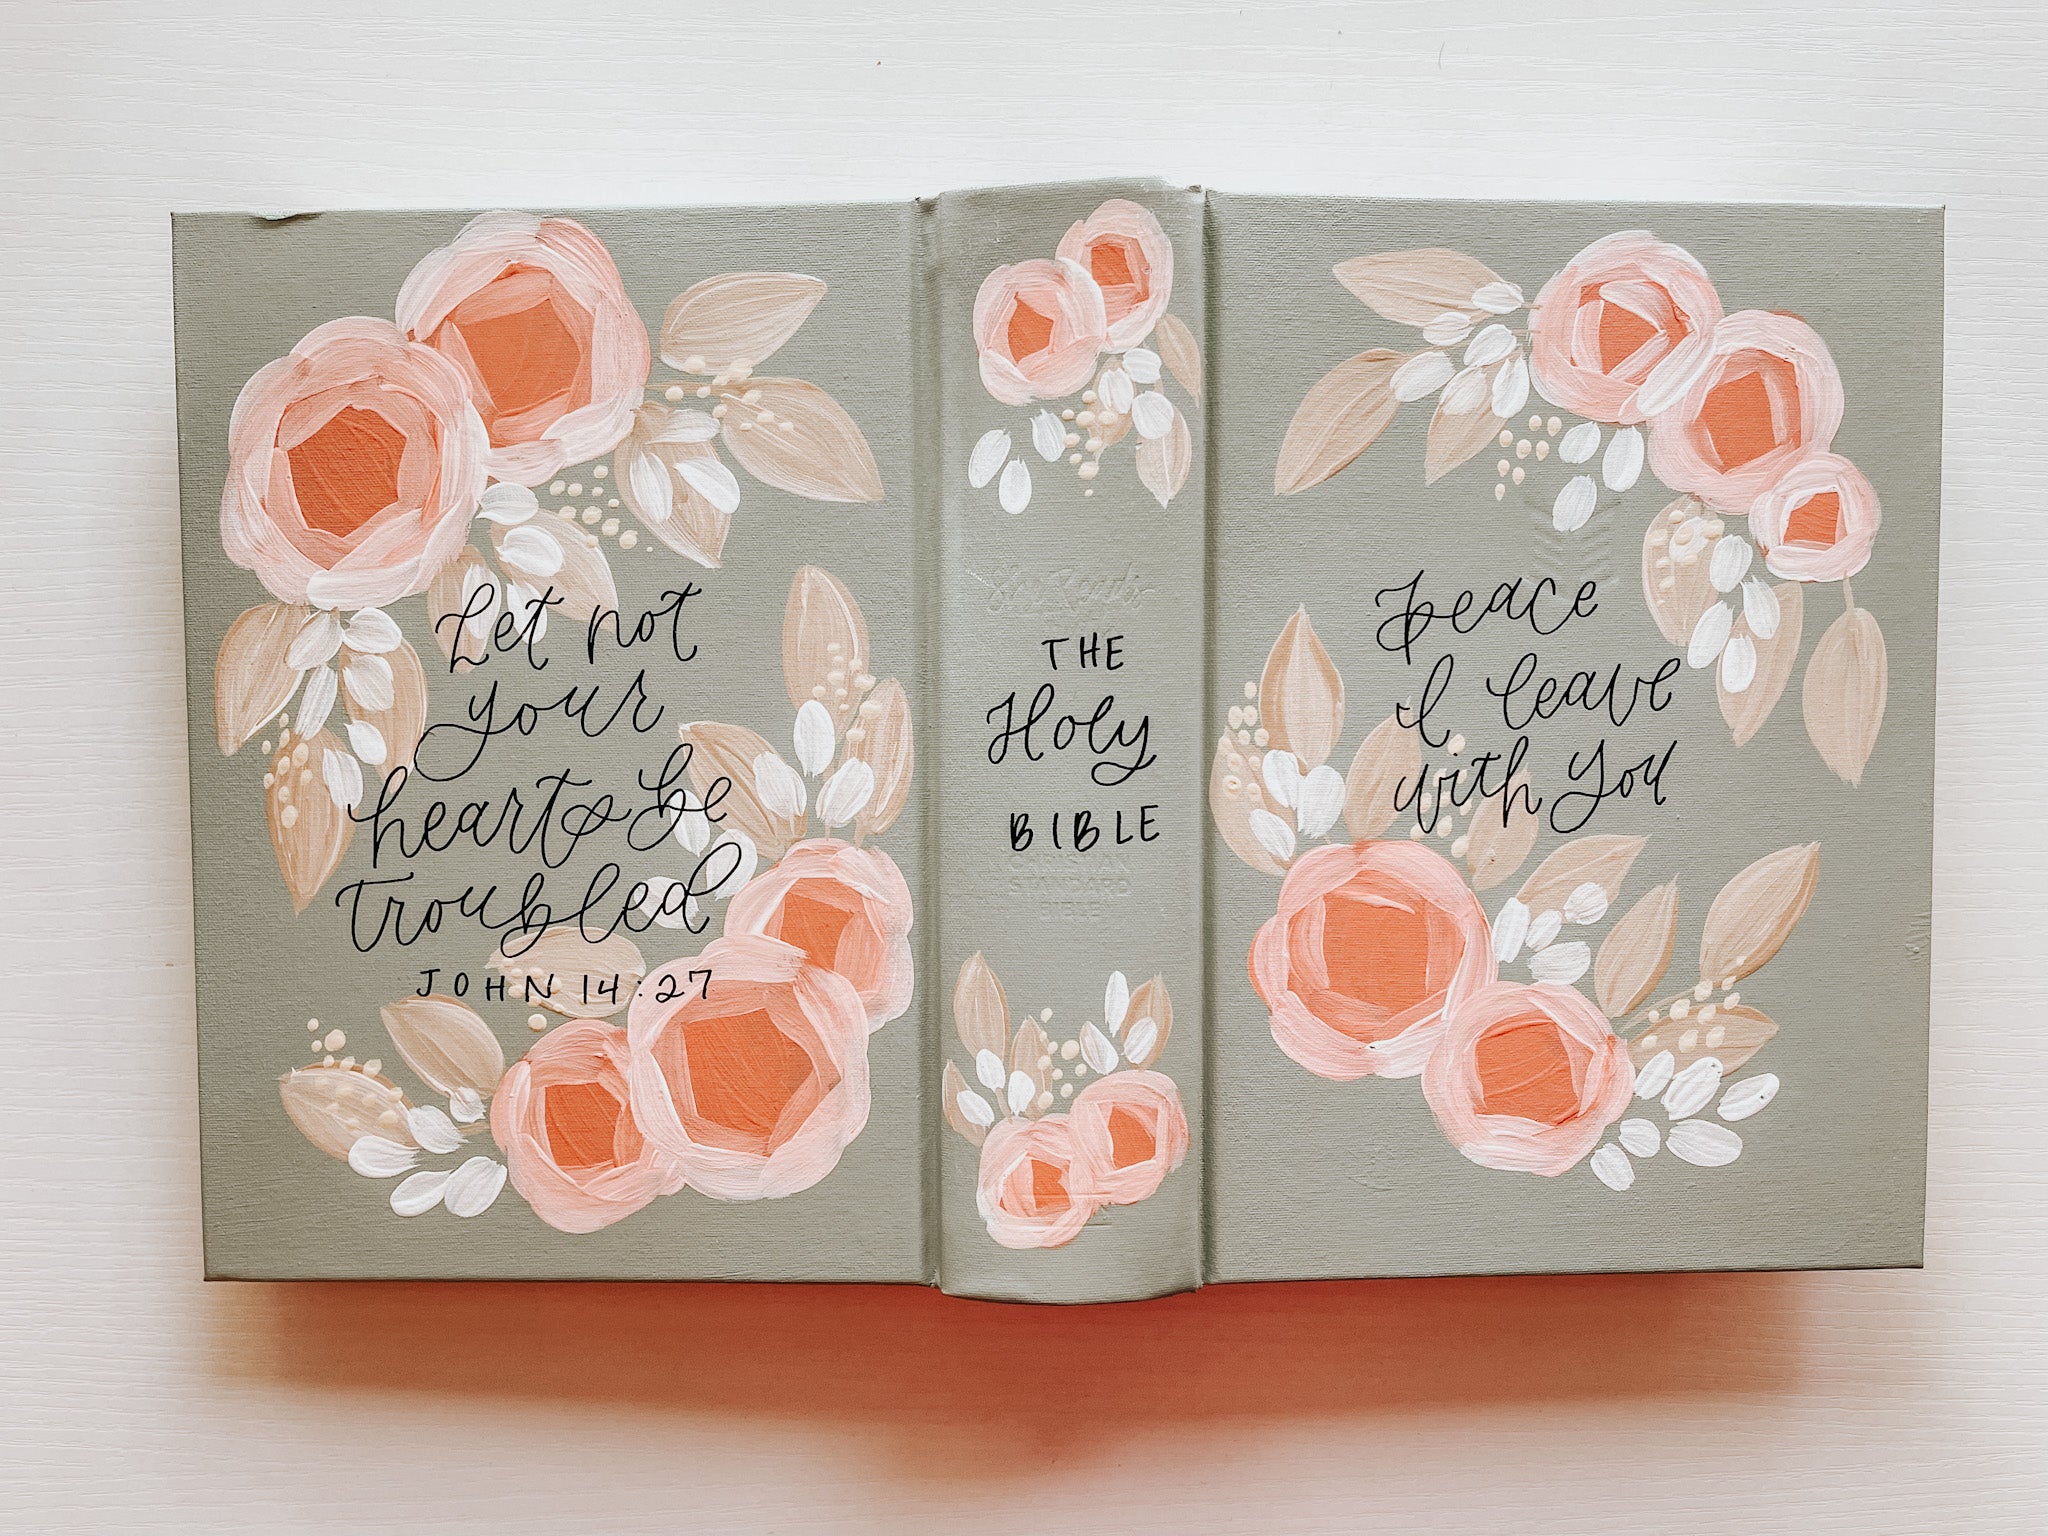 Let not
your
heart be
troubled
JOHN 14:27
She Reads
THE
Holy
BIBLE
CHRISTIAN
STANDARD
BIBLE
peace
I leave
with you